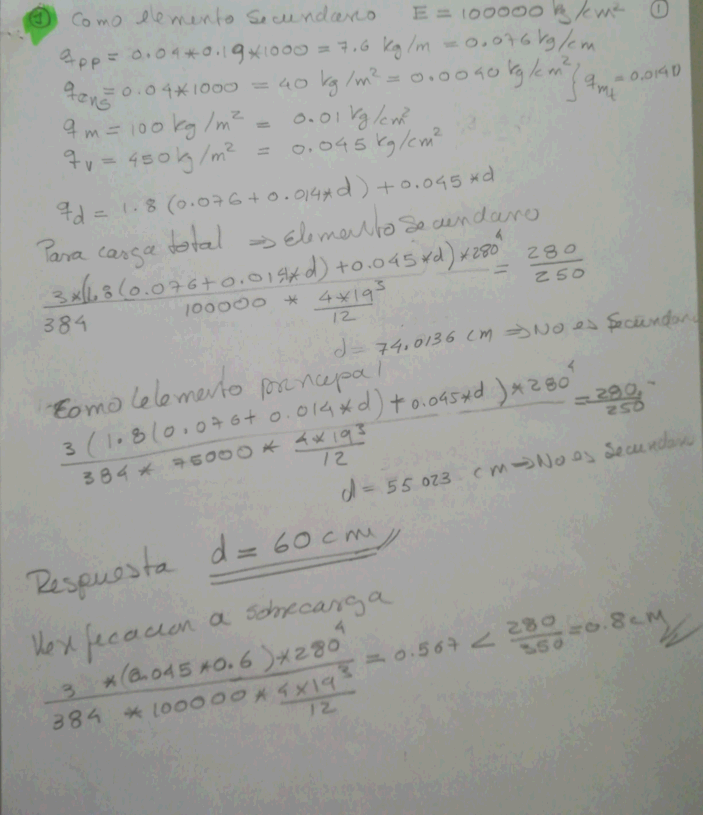 ① Como elemento Secundario E = 100000 kg/cm² ①
q_pp = 0.04*0.19*1000 = 7.6 kg/m = 0.076 kg/cm
q_ens = 0.04*1000 = 40 kg/m² = 0.0040 kg/cm² } q_mt = 0.0140
q_m = 100 kg/m² = 0.01 kg/cm²
q_v = 450 kg/m² = 0.045 kg/cm²
q_d = 1.8 (0.076 + 0.014*d) + 0.045*d
Para carga total ⇒ Elemento Secundario
3*(1.8(0.076+0.014*d)+0.045*d)*280⁴ = 280
384 100000 * 4*19³ 250
12
d = 74.0136 cm ⇒ No es Secundario
Como elemento principal
3 (1.8(0.076+0.014*d)+0.045*d)*280⁴ = 280
384 * 75000 * 4*19³ 250
12
d = 55.023 cm ⇒ No es Secundario
Respuesta d = 60 cm
Verificacion a sobrecarga
3 *(0.045*0.6)*280⁴ = 0.567 < 280 = 0.8 cm
384 *100000* 4*19³ 350
12